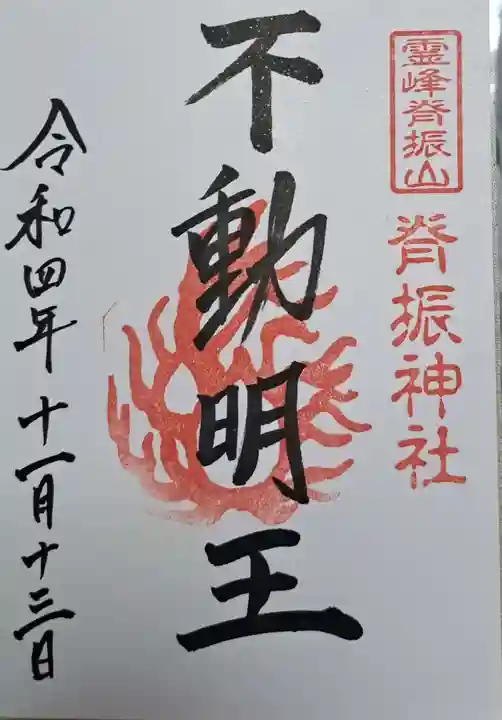 霊峰脊振山
脊振神社
不動明王
令和四年十一月十三日